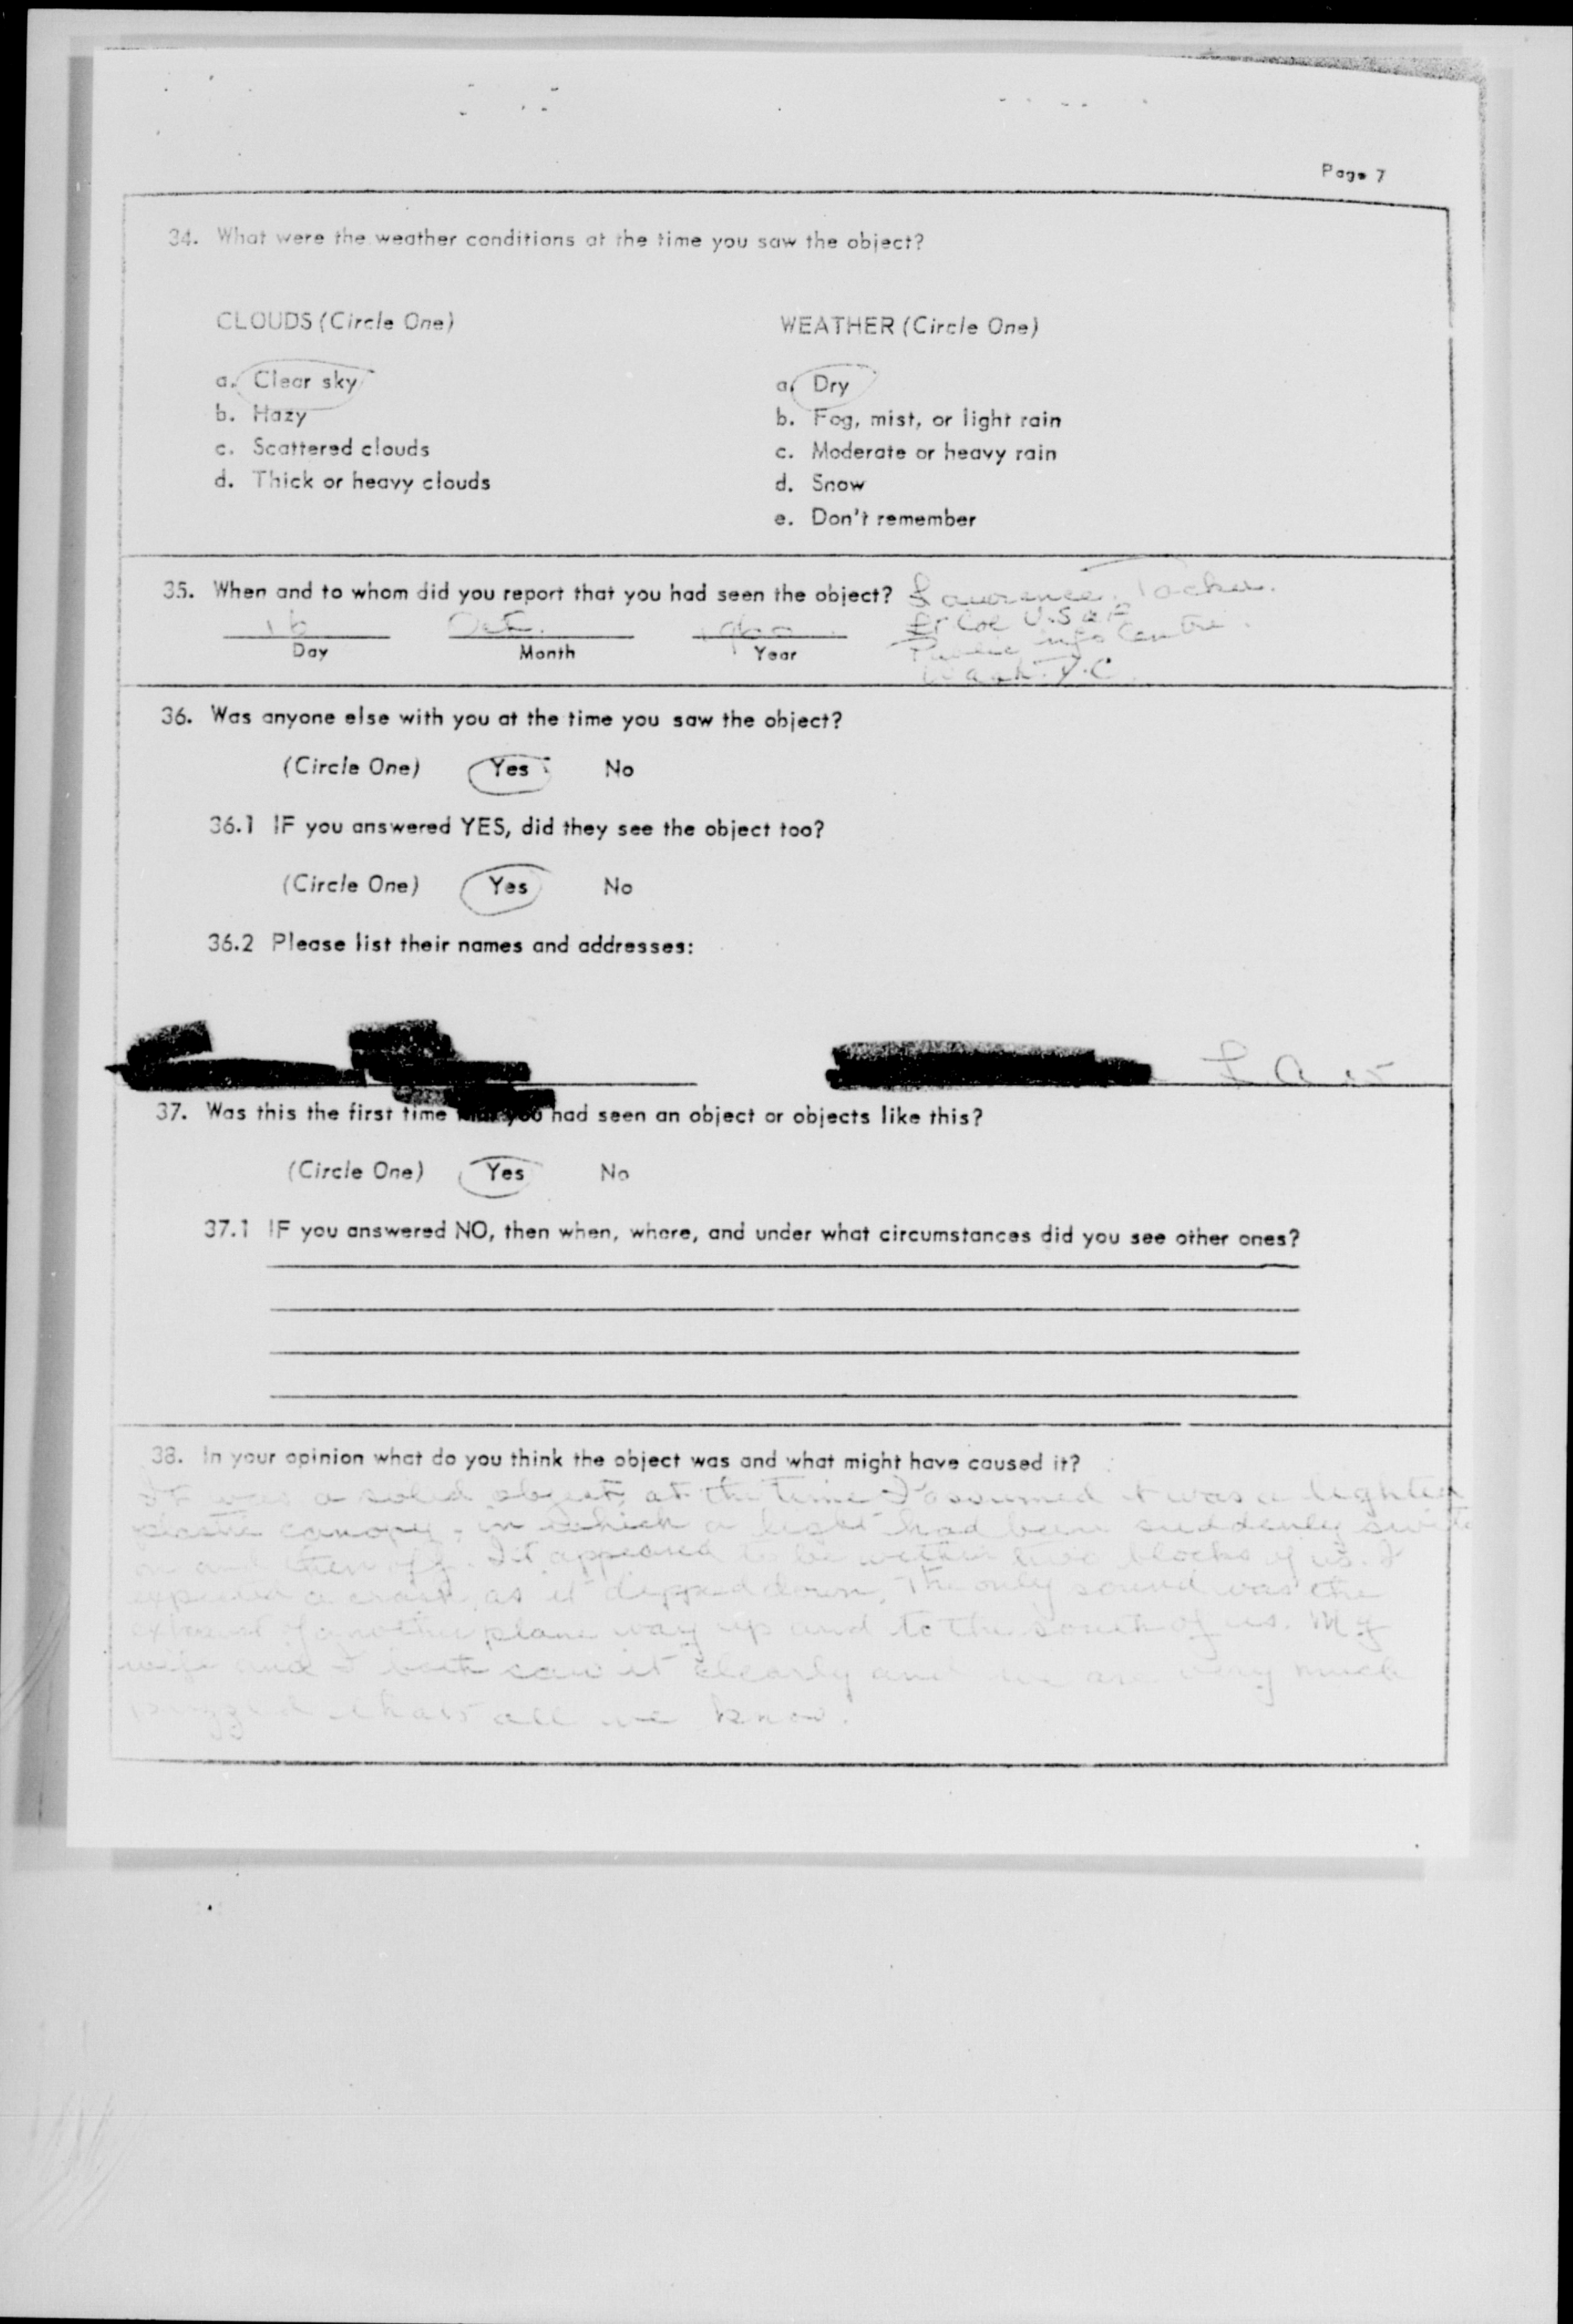 Page 7
34. What were the weather conditions at the time you saw the object?
CLOUDS (Circle One)
a. Clear sky
b. Hazy
c. Scattered clouds
d. Thick or heavy clouds
WEATHER (Circle One)
a. Dry
b. Fog, mist, or light rain
c. Moderate or heavy rain
d. Snow
e. Don't remember
35. When and to whom did you report that you had seen the object? Lawrence
Lt Col U.S.A.F
Public info Centre.
Wash. D.C.
16 Oct. 1960
Day Month Year
36. Was anyone else with you at the time you saw the object?
(Circle One) Yes No
36.1 IF you answered YES, did they see the object too?
(Circle One) Yes No
36.2 Please list their names and addresses:
37. Was this the first time you had seen an object or objects like this?
(Circle One) Yes No
37.1 IF you answered NO, then when, where, and under what circumstances did you see other ones?
38. In your opinion what do you think the object was and what might have caused it?
It was a solid object, at the time I assumed it was a lighted
plastic canopy, in which a light had been suddenly
on and then off. It appeared to be within two blocks of us. I
expected a crash, as it dipped down. The only sound was the
exhaust of another plane way up and to the south of us. My
wife and I both saw it clearly and we are very much
puzzled all we know.